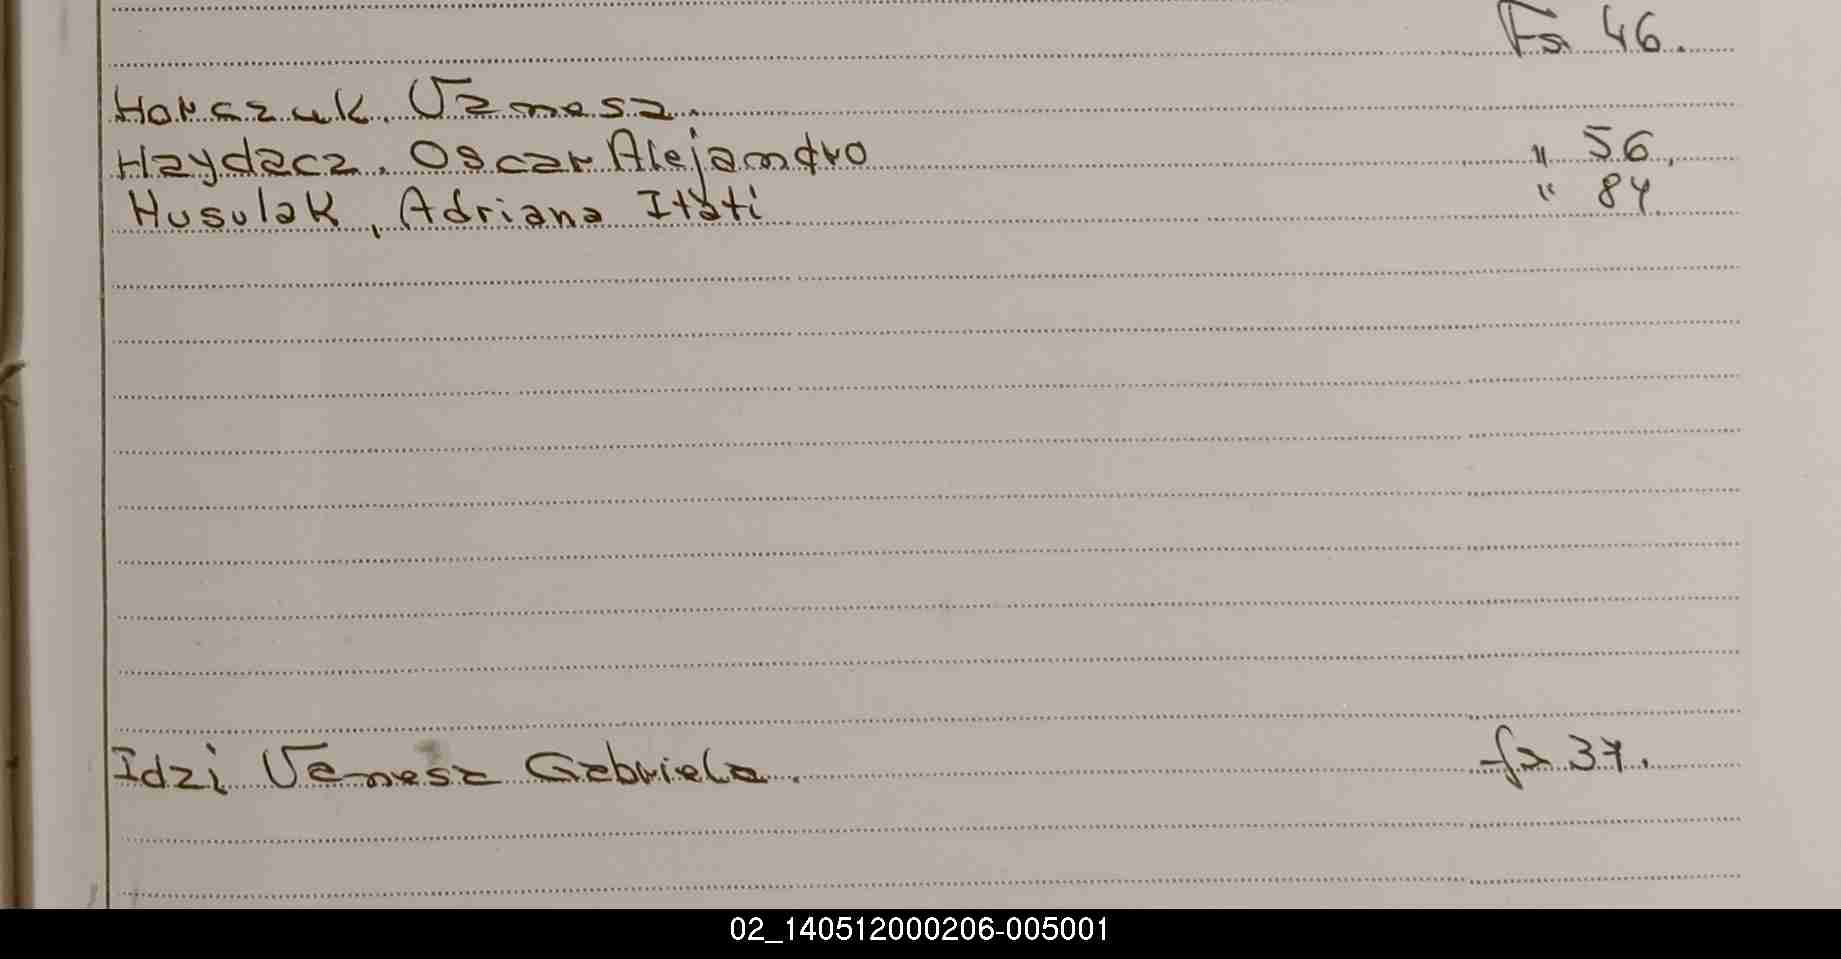 Fs 46.
Horczuk. Vanesa.
Haydacz. Oscar Alejandro " 56.
Husulak, Adriana Itati " 84.
Idzi Vanesa Gabriela. fs 37.
02_140512000206-005001